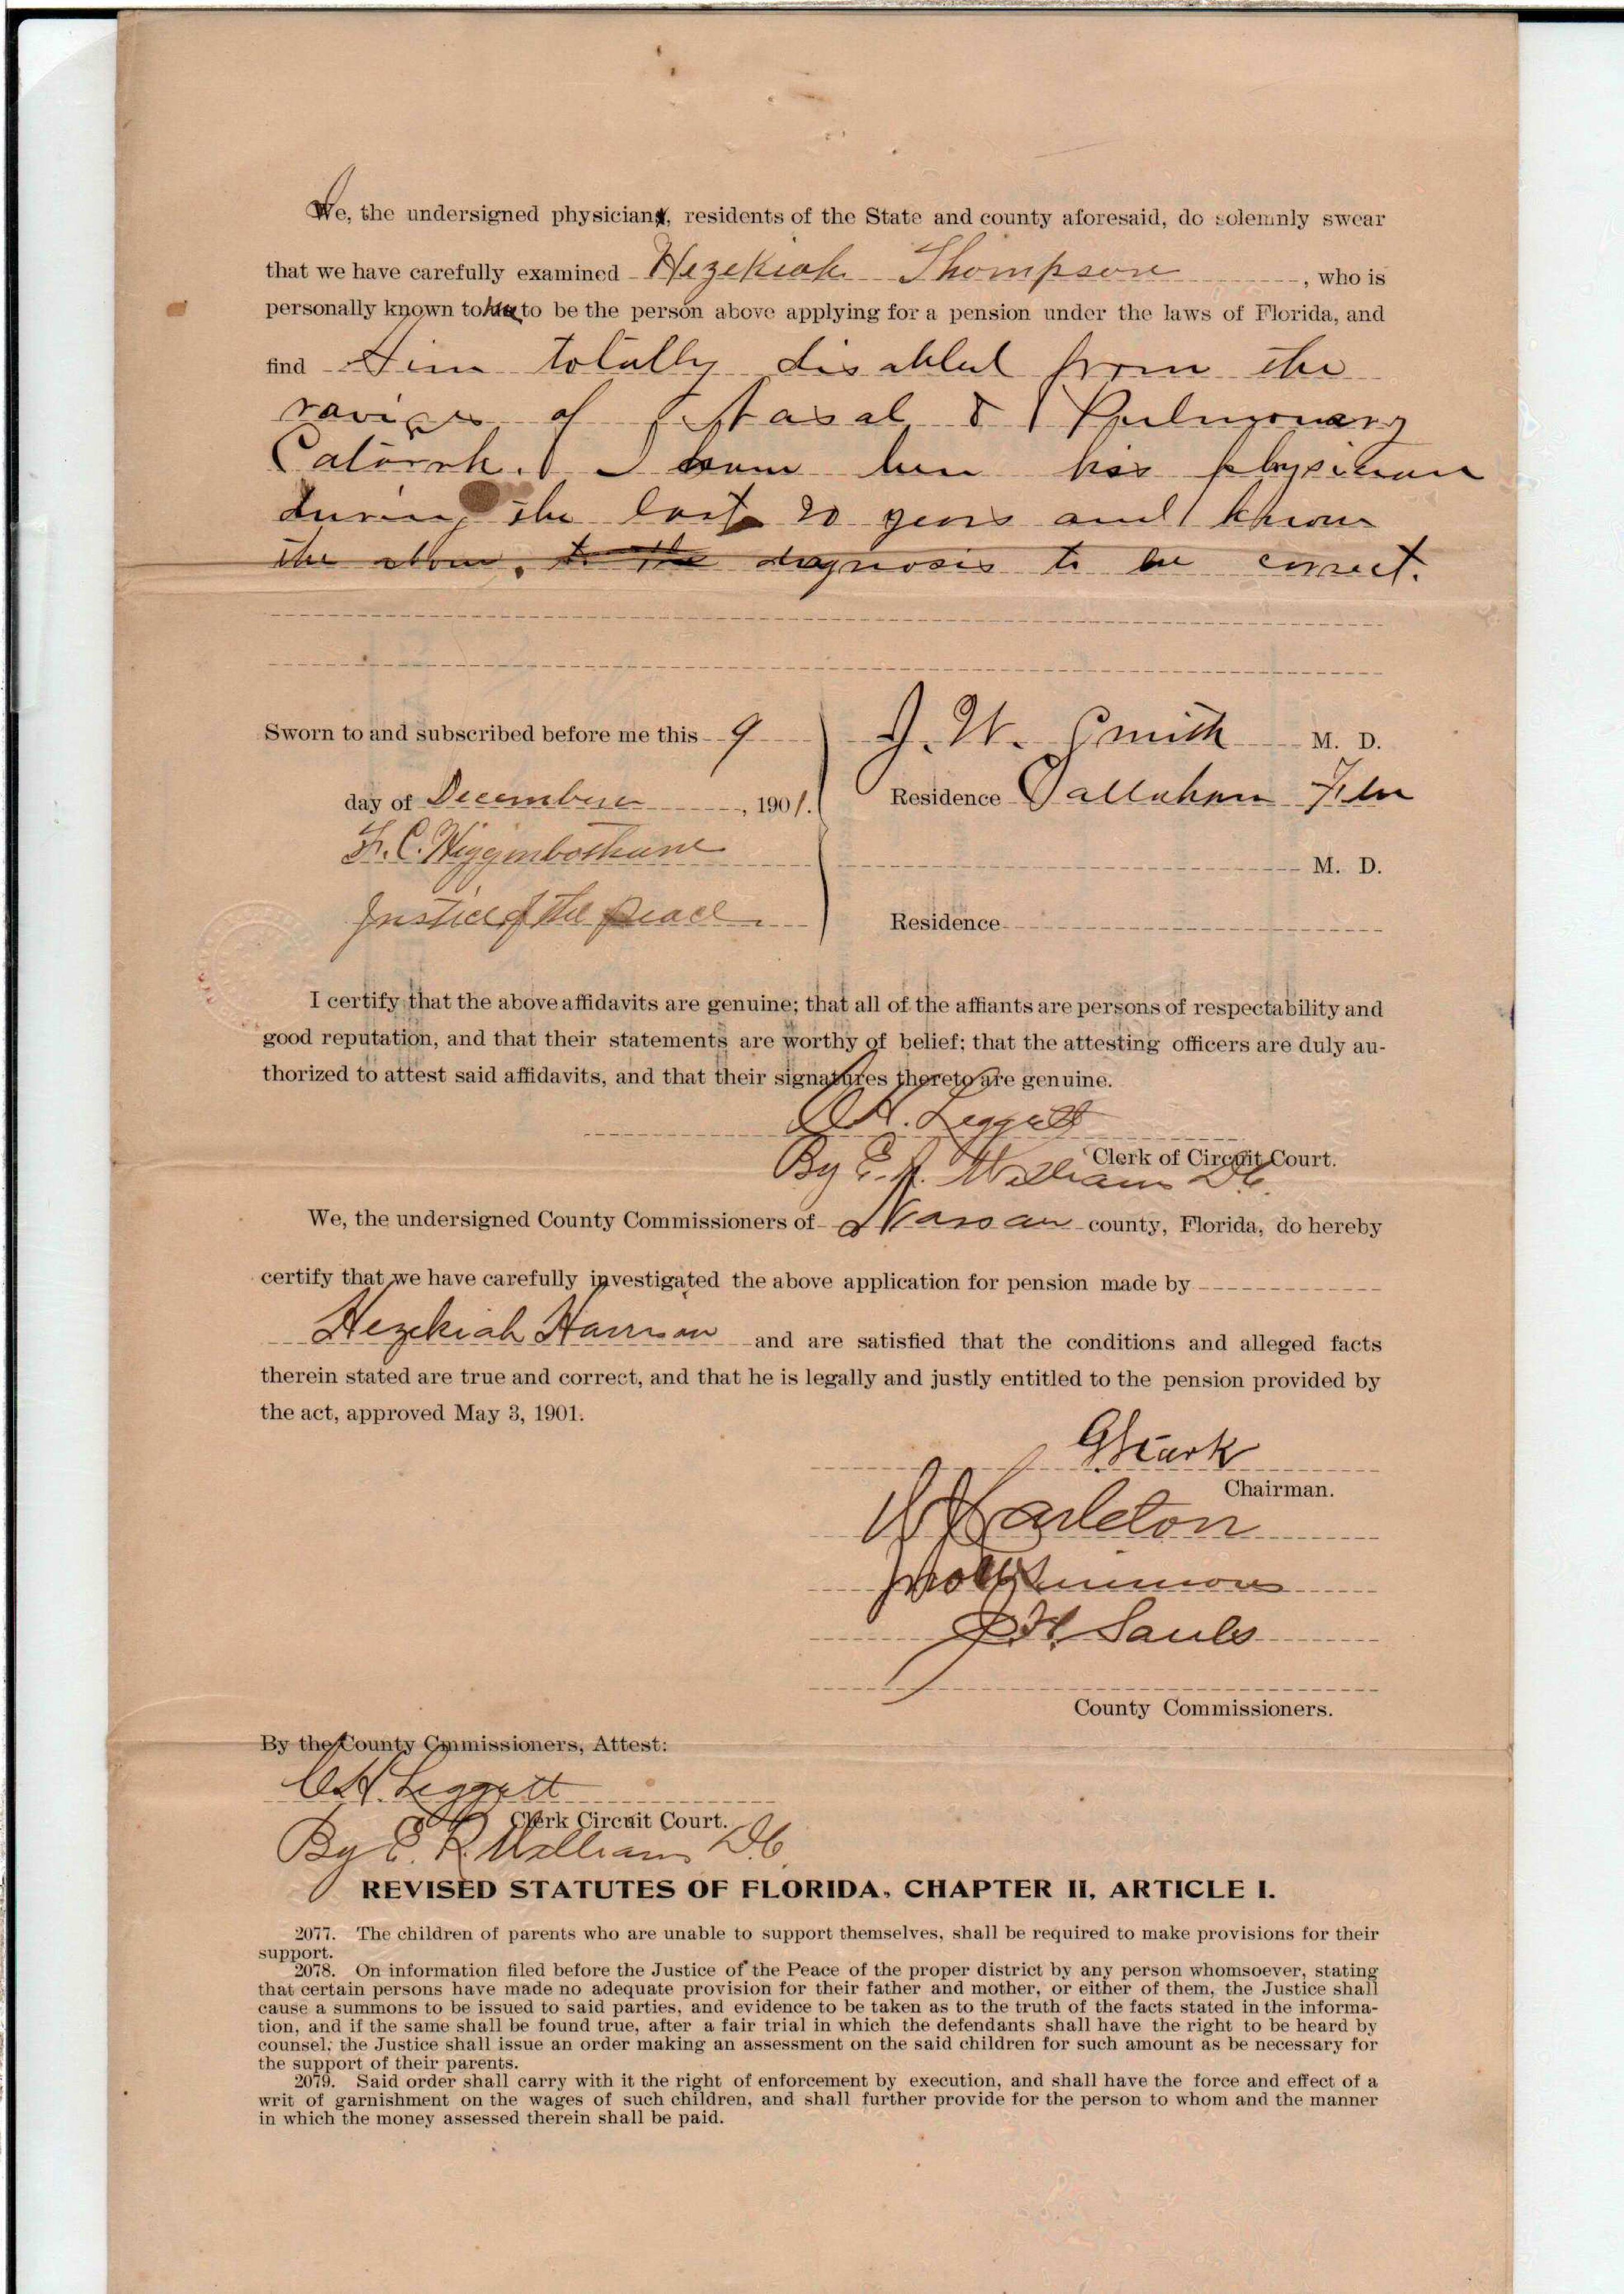 We, the undersigned physicians, residents of the State and county aforesaid, do solemnly swear
that we have carefully examined Hezekiah Thompson, who is
personally known to me to be the person above applying for a pension under the laws of Florida, and
find him totally disabled from the
ravages of Nasal & Pulmonary
Catarrh. I have been his physician
during the last 20 years and know
the above to the diagnosis to be correct.
Sworn to and subscribed before me this 9
J. W. Smith M. D.
day of December, 1901.
Residence Callahan Fla
Higginbotham
M. D.
Justice of the peace
Residence
I certify that the above affidavits are genuine; that all of the affiants are persons of respectability and
good reputation, and that their statements are worthy of belief; that the attesting officers are duly au-
thorized to attest said affidavits, and that their signatures thereto are genuine.
H. Leggett
Clerk of Circuit Court.
By E. R. Williams D.C.
We, the undersigned County Commissioners of Nassau county, Florida, do hereby
certify that we have carefully investigated the above application for pension made by
Hezekiah Harrison and are satisfied that the conditions and alleged facts
therein stated are true and correct, and that he is legally and justly entitled to the pension provided by
the act, approved May 3, 1901.
G Stark
Chairman.
Carleton
Simmons
J. H. Sauls
County Commissioners.
By the County Commissioners, Attest:
H. Leggett
Clerk Circuit Court.
By E. R. Williams D.C.
REVISED STATUTES OF FLORIDA, CHAPTER II, ARTICLE I.
2077. The children of parents who are unable to support themselves, shall be required to make provisions for their
support.
2078. On information filed before the Justice of the Peace of the proper district by any person whomsoever, stating
that certain persons have made no adequate provision for their father and mother, or either of them, the Justice shall
cause a summons to be issued to said parties, and evidence to be taken as to the truth of the facts stated in the informa-
tion, and if the same shall be found true, after a fair trial in which the defendants shall have the right to be heard by
counsel, the Justice shall issue an order making an assessment on the said children for such amount as be necessary for
the support of their parents.
2079. Said order shall carry with it the right of enforcement by execution, and shall have the force and effect of a
writ of garnishment on the wages of such children, and shall further provide for the person to whom and the manner
in which the money assessed therein shall be paid.